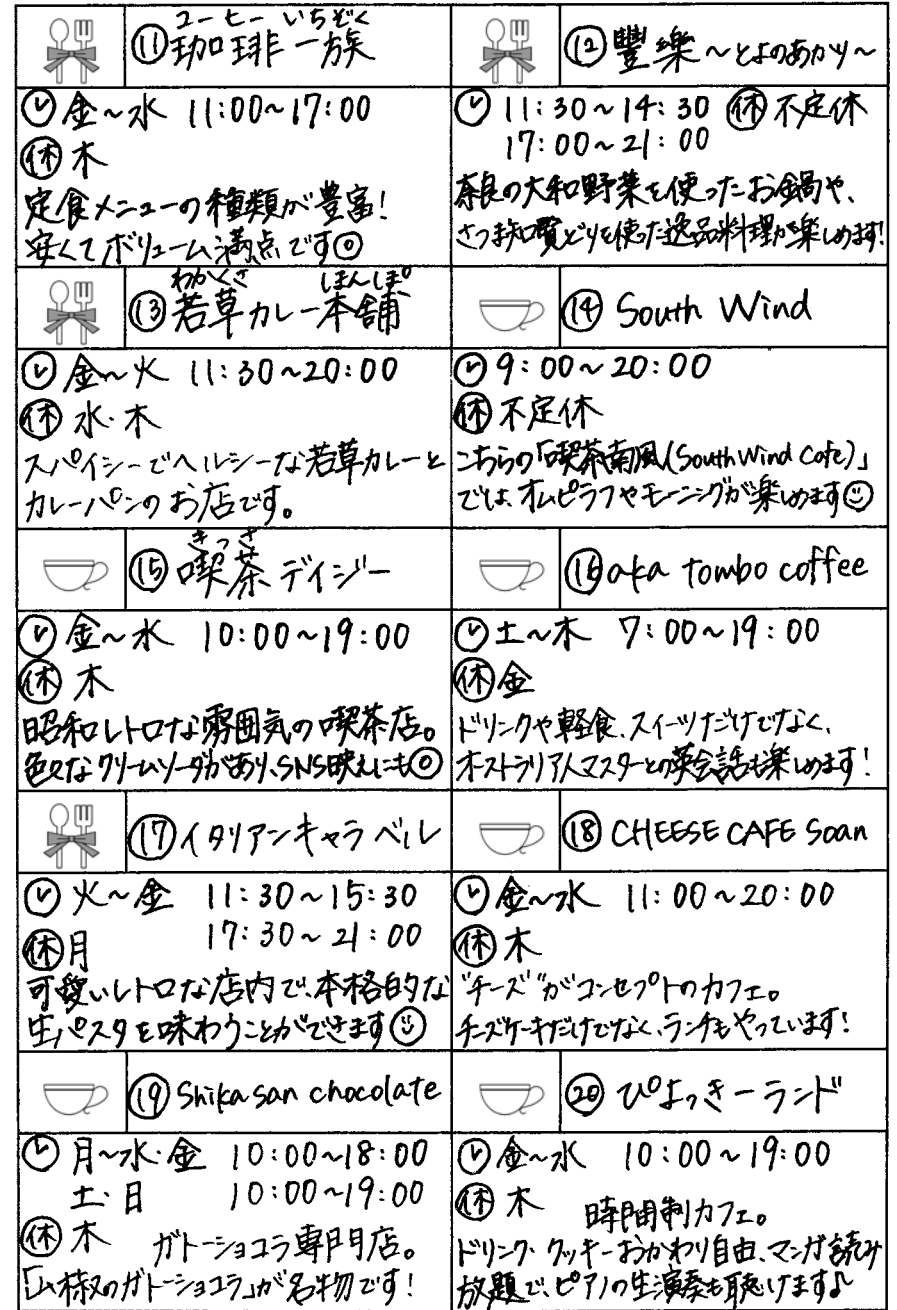 コーヒー いちぞく
⑪珈琲一族
🕒金~水 11:00~17:00
㊡木
定食メニューの種類が豊富!
安くてボリューム満点です◎
⑫豐樂~とよのあかり~
🕒11:30~14:30 ㊡不定休
17:00~21:00
奈良の大和野菜を使ったお鍋や、
さつま知覧どりを使った逸品料理が楽しめます!
わかくさ ほんぽ
⑬若草カレー本舗
🕒金~火 11:30~20:00
㊡水・木
スパイシーでヘルシーな若草カレーと
カレーパンのお店です。
⑭South Wind
🕒9:00~20:00
㊡不定休
こちらの「喫茶南風(South Wind Cafe)」
では、オムピラフやモーニングが楽しめます☺
きっさ
⑮喫茶デイジー
🕒金~水 10:00~19:00
㊡木
昭和レトロな雰囲気の喫茶店。
色々なクリームソーダがあり、SNS映えにも◎
⑯aka tombo coffee
🕒土~木 7:00~19:00
㊡金
ドリンクや軽食、スイーツだけでなく、
オーストラリア人マスターとの英会話も楽しめます!
⑰イタリアンキャラベル
🕒火~金 11:30~15:30
17:30~21:00
㊡月
可愛いレトロな店内で、本格的な
生パスタを味わうことができます☺
⑱CHEESE CAFE Soan
🕒金~水 11:00~20:00
㊡木
"チーズ"がコンセプトのカフェ。
チーズケーキだけでなく、ランチもやっています!
⑲Shikasan chocolate
🕒月~水・金 10:00~18:00
土・日 10:00~19:00
㊡木 ガトーショコラ専門店。
「山椒のガトーショコラ」が名物です!
⑳ぴよっきーランド
🕒金~水 10:00~19:00
㊡木 時間制カフェ。
ドリンク・クッキーおかわり自由、マンガ読み
放題で、ピアノの生演奏も聴けます♪